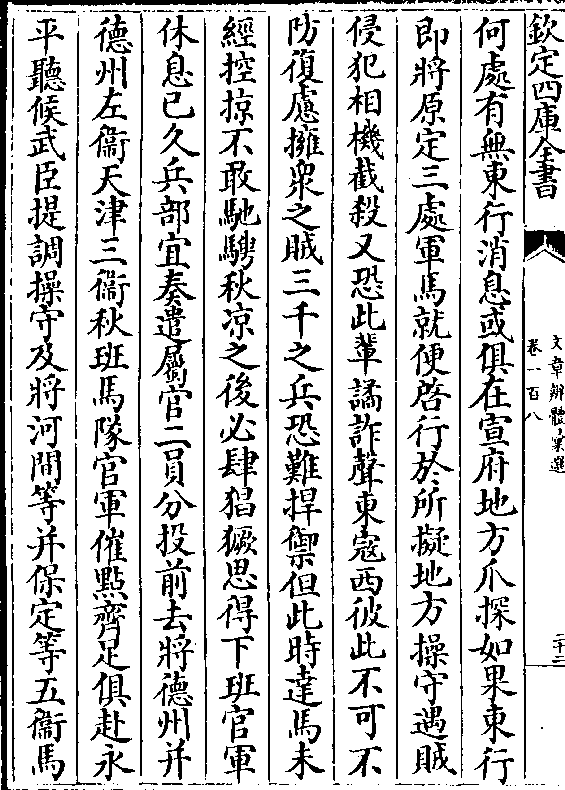 欽定四庫全書
文章辨體彙選
卷一百八
二十二
何處有無東行消息或俱在宣府地方爪探如果東行
即將原定三處軍馬就便啓行於所擬地方操守遇賊
侵犯相機截殺又恐此輩譎詐聲東寇西彼此不可不
防復慮擁衆之賊三千之兵恐難捍禦但此時達馬未
經控掠不敢馳騁秋凉之後必肆猖獗思得下班官軍
休息已久兵部宜奏遣屬官二員分投前去將德州并
德州左衞天津三衞秋班馬隊官軍催點齊足俱赴永
平聽候武臣提調操守及將河間等并保定等五衞馬